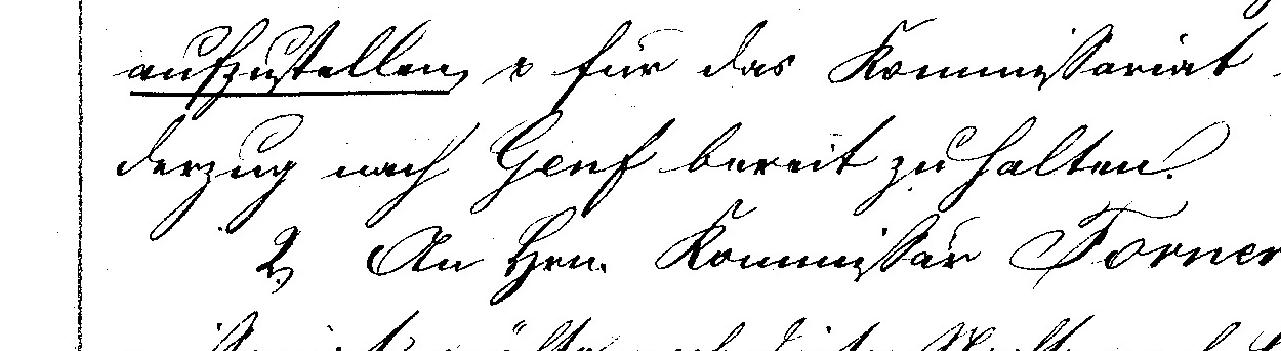 aufzustellen, & für das Kommissariat
derzug nach Genf bereit zu halten.
2, An Hrn. Kommissär Forner